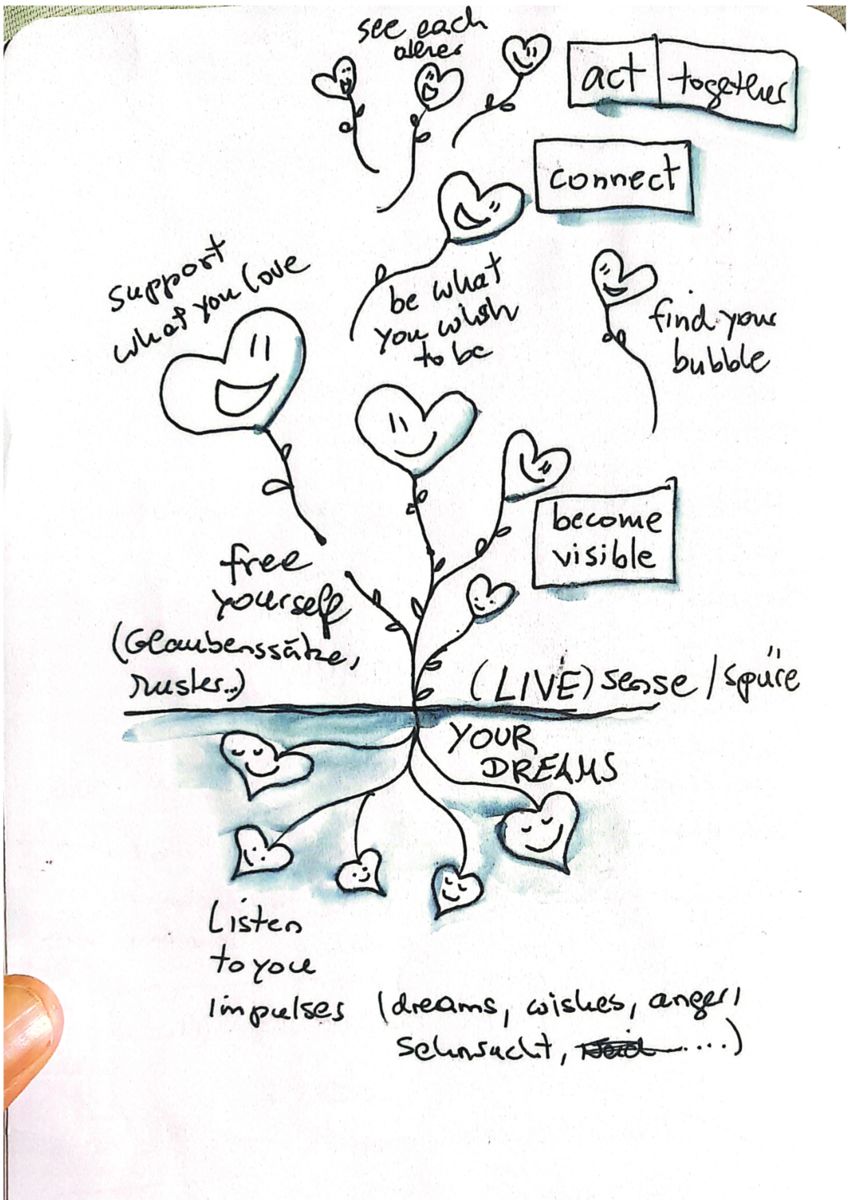 see each
other
act together
connect
support
what you love
be what
you wish
to be
find your
bubble
become
visible
free
yourself
(Glaubenssätze,
Muster..)
(LIVE) sense / spüre
YOUR
DREAMS
Listen
to your
impulses (dreams, wishes, anger,
Sehnsucht, ....)